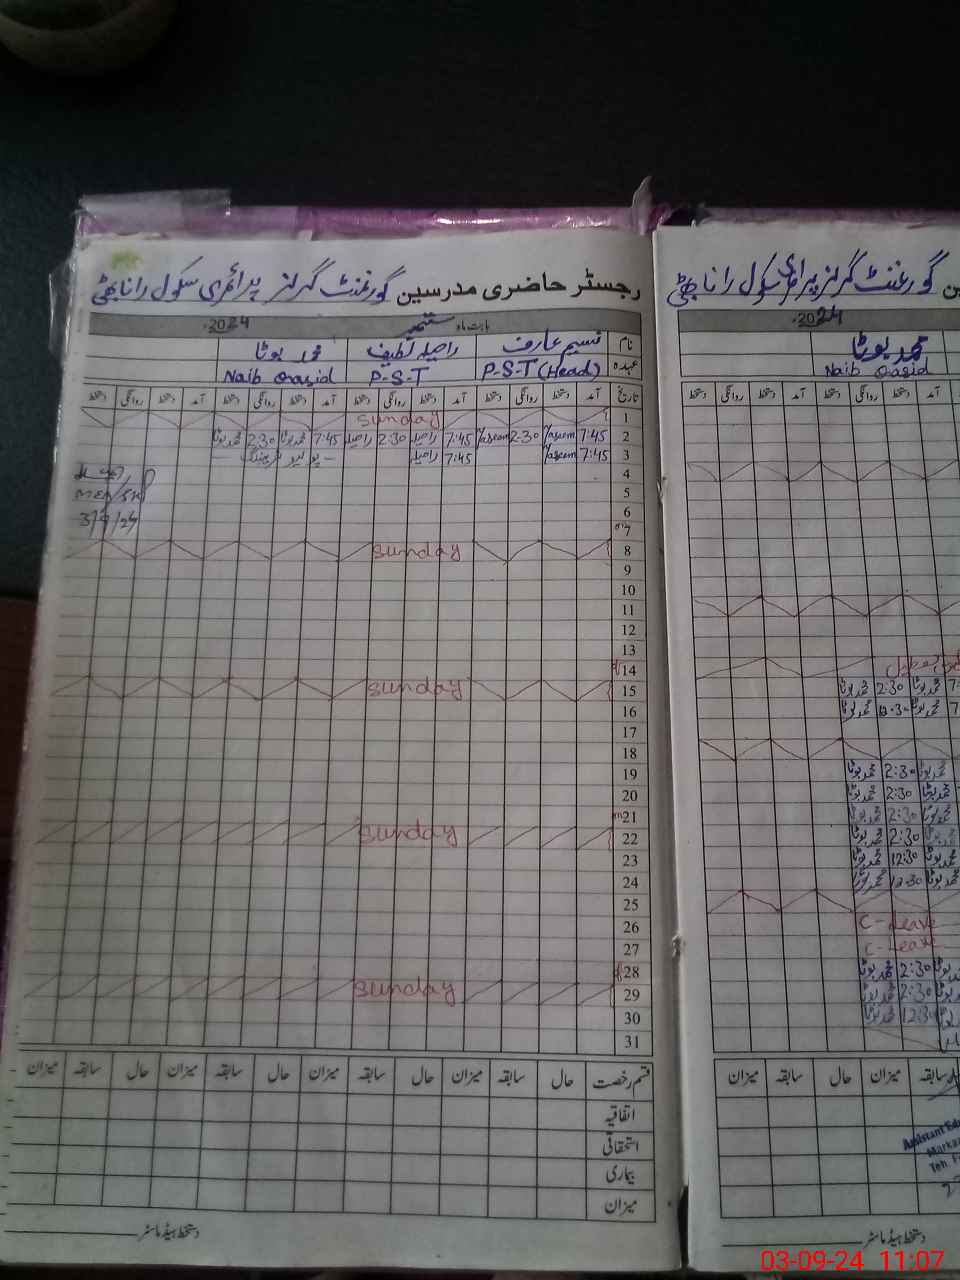 رجسٹر حاضری مدرسین گورنمنٹ گرلز پرائمری سکول رانا بھٹی
بابت ماہ ستمبر 2024
نام نسیم عارف راحیلہ لطیف محمد بوٹا
عہدہ P-S-T (Head) P-S-T Naib Qasid
تاریخ آمد دستخط روانگی دستخط آمد دستخط روانگی دستخط آمد دستخط روانگی دستخط آمد دستخط روانگی دستخط
1 Sunday
2 7:45 Naseem 2-30 Naseem 7:45 راحیلہ 2:30 راحیلہ 7:45 محمد بوٹا 2:30 محمد بوٹا
3 7:45 Naseem 7:45 راحیلہ - پولیو ٹریننگ -
4
5
3/9/24
6
7
8 Sunday
9
10
11
12
13
14
15 Sunday
16
17
18
19
20
21
22 Sunday
23
24
25
26
27
28
29 Sunday
30
31
قسم رخصت حال سابقہ میزان حال سابقہ میزان حال سابقہ میزان حال سابقہ میزان
اتفاقیہ
استحقاقی
بیماری
میزان
دستخط ہیڈ ماسٹر
گورنمنٹ گرلز پرائمری سکول رانا بھٹی
2024
محمد بوٹا
Naib Qasid
آمد دستخط روانگی دستخط آمد دستخط روانگی دستخط
محمد بوٹا 2:30 محمد بوٹا
محمد بوٹا 12:30 محمد بوٹا
محمد بوٹا 2:30 محمد بوٹا
محمد بوٹا 2:30 محمد بوٹا
محمد بوٹا 2:30 محمد بوٹا
محمد بوٹا 2:30 محمد بوٹا
محمد بوٹا 12:30 محمد بوٹا
محمد بوٹا 12:30 محمد بوٹا
C-Leave
C-Leave
محمد بوٹا 2:30
محمد بوٹا 2:30
محمد بوٹا 12:30
سابقہ میزان حال سابقہ میزان
Assistant
Teh.
دستخط ہیڈ ماسٹر
03-09-24 11:07